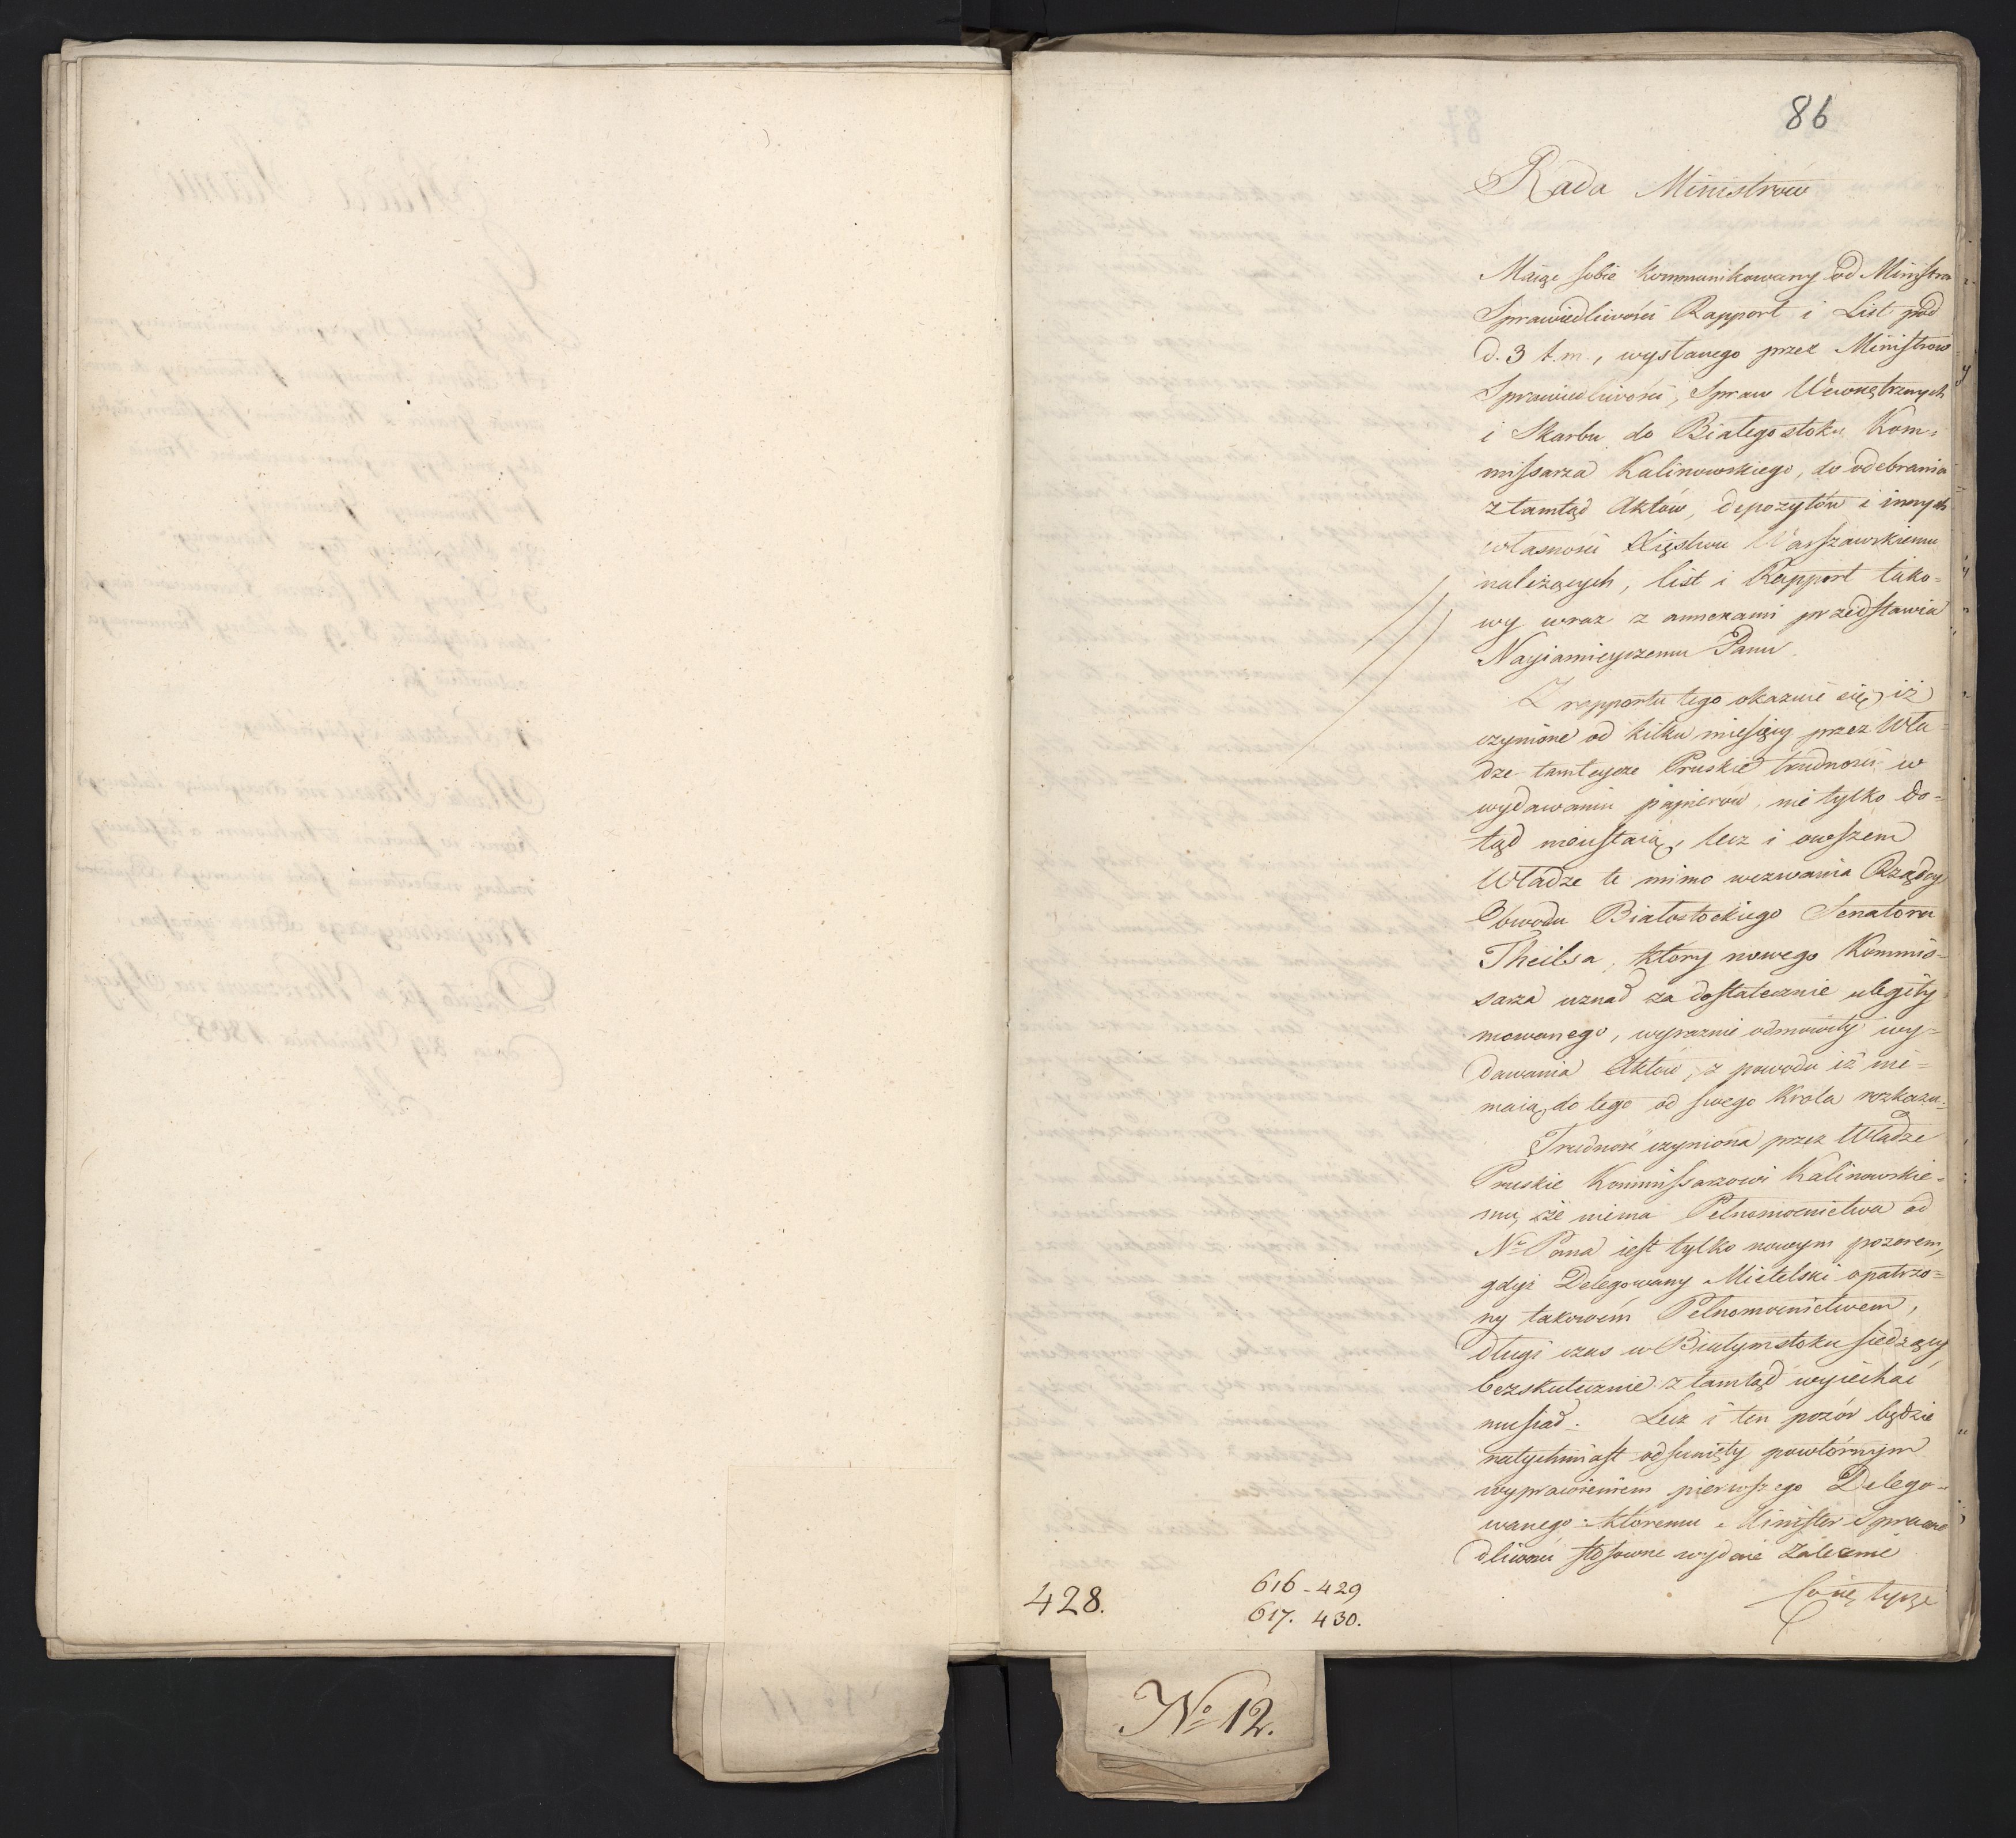 86
Rada Ministrów
Maiąc sobie kommunikowany od Ministra
Sprawiedliwości Rapport i List pod
d. 3 t.m., wysłanego przez Ministrów
Sprawiedliwości, Spraw Wewnętrznych
i Skarbu do Białegostoku Kom-
missarza Kalinowskiego, do odebrania
ztamtąd Aktów, depozytów i innych
własności Xięstwu Warszawskiemu
należących, list i Rapport tako-
wy wraz z annexami przedstawia
Nayiaśnieyszemu Panu.
Z rapportu tego okazuie się, iż
czynione od kilku miesięcy przez Wła-
dze tamteysze Pruskie trudności w
wydawaniu papierów, nie tylko do-
tąd nieustaią, lecz i owszem
Władze te mimo wezwania Rządcy
Obwodu Białostockiego Senatora
Theilsa, który nowego Kommis-
sarza uznał za dostatecznie ulegity-
mowanego, wyraznie odmówiły wy-
dawania Aktów, z powodu iż nie-
maią do tego od swego Króla rozkazu.
Trudność czyniona przez Władze
Pruskie Kommissarzowi Kalinowskie-
mu, że niema Pełnomocnictwa od
No Pana iest tylko nowym pozorem,
gdyż Delegowany Mielelski opatrzo-
ny takowém Pełnomocnictwem,
długi czas w Białymstoku siedzący
bezskutecznie ztamtąd wyiechać
musiał. Lecz i ten pozór będzie
natychmiast odsunięty powtórnym
wyprawieniem pierwszego Delego-
wanego: któremu Minister Sprawie
dliwości stosowne wydaie Zalecenie
Co się tycze
428.
616-429
617. 430.
No 12.